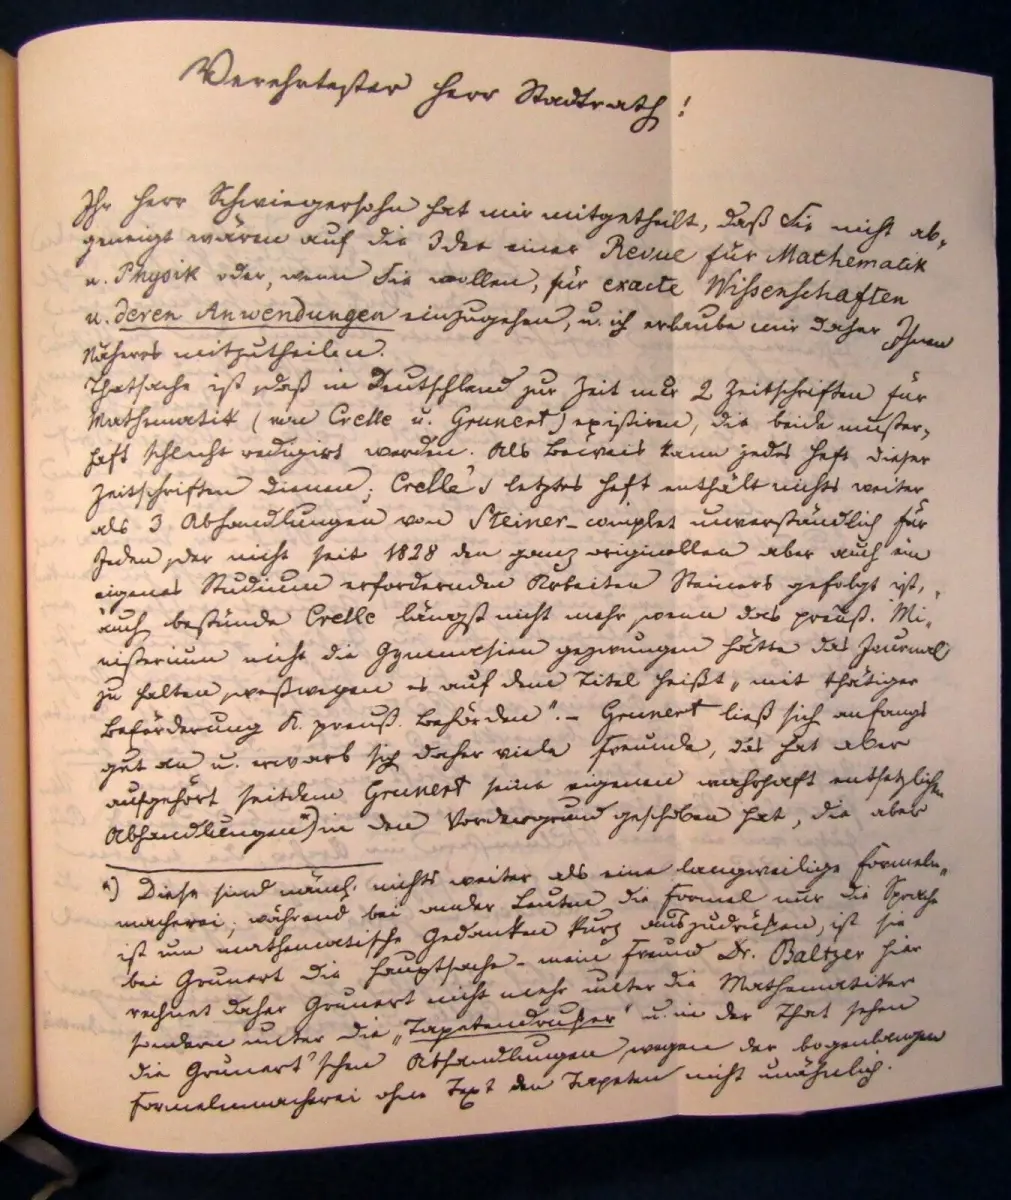 Verehrtester Herr Stadtrath!
Ihr Herr Schwiegersohn hat mir mitgetheilt, daß Sie nicht ab-
geneigt wären auf die Idee einer Revue für Mathematik
u. Physik oder, wenn Sie wollen, für exacte Wissenschaften
u. deren Anwendungen einzugehen, u. ich erlaube mir daher Ihnen
Näheres mitzutheilen.
Thatsache ist, daß in Deutschland zur Zeit nur 2 Zeitschriften für
Mathematik (von Crelle u. Grunert) existiren, die beide muster-
haft schlecht redigirt werden. Als Beweis kann jedes Heft dieser
Zeitschriften dienen; Crelle's letztes Heft enthält nichts weiter
als 3 Abhandlungen von Steiner - complet unverständlich für
Jeden, der nicht seit 1828 den ganz originellen aber auch ein
eigenes Studium erfordernden Arbeiten Steiners gefolgt ist,
auch bestünde Crelle längst nicht mehr, wenn das preuß. Mi-
nisterium nicht die Gymnasien gezwungen hätte das Journal
zu halten, weßwegen es auf dem Titel heißt „mit thätiger
Beförderung K. preuß. Behörden". - Grunert ließ sich anfangs
gut an u. erwarb sich daher viele Freunde, das hat aber
aufgehört seitdem Grunert seine eigenen wahrhaft entsetzlichen
Abhandlungen*) in den Vordergrund geschoben hat, die aber
*) Diese sind näml. nichts weiter als eine langweilige Formeln-
macherei; während bei andern Leuten die Formel nur die Sprache
ist um mathematische Gedanken kurz auszudrücken, ist sie
bei Grunert die Hauptsache - mein Freund Dr. Baltzer hier
rechnet daher Grunert nicht mehr unter die Mathematiker
sondern unter die „Tapetendrucker" u. in der That sehen
die Grunert'schen Abhandlungen wegen der bogenlangen
Formelnmacherei ohne Text den Tapeten nicht unähnlich.